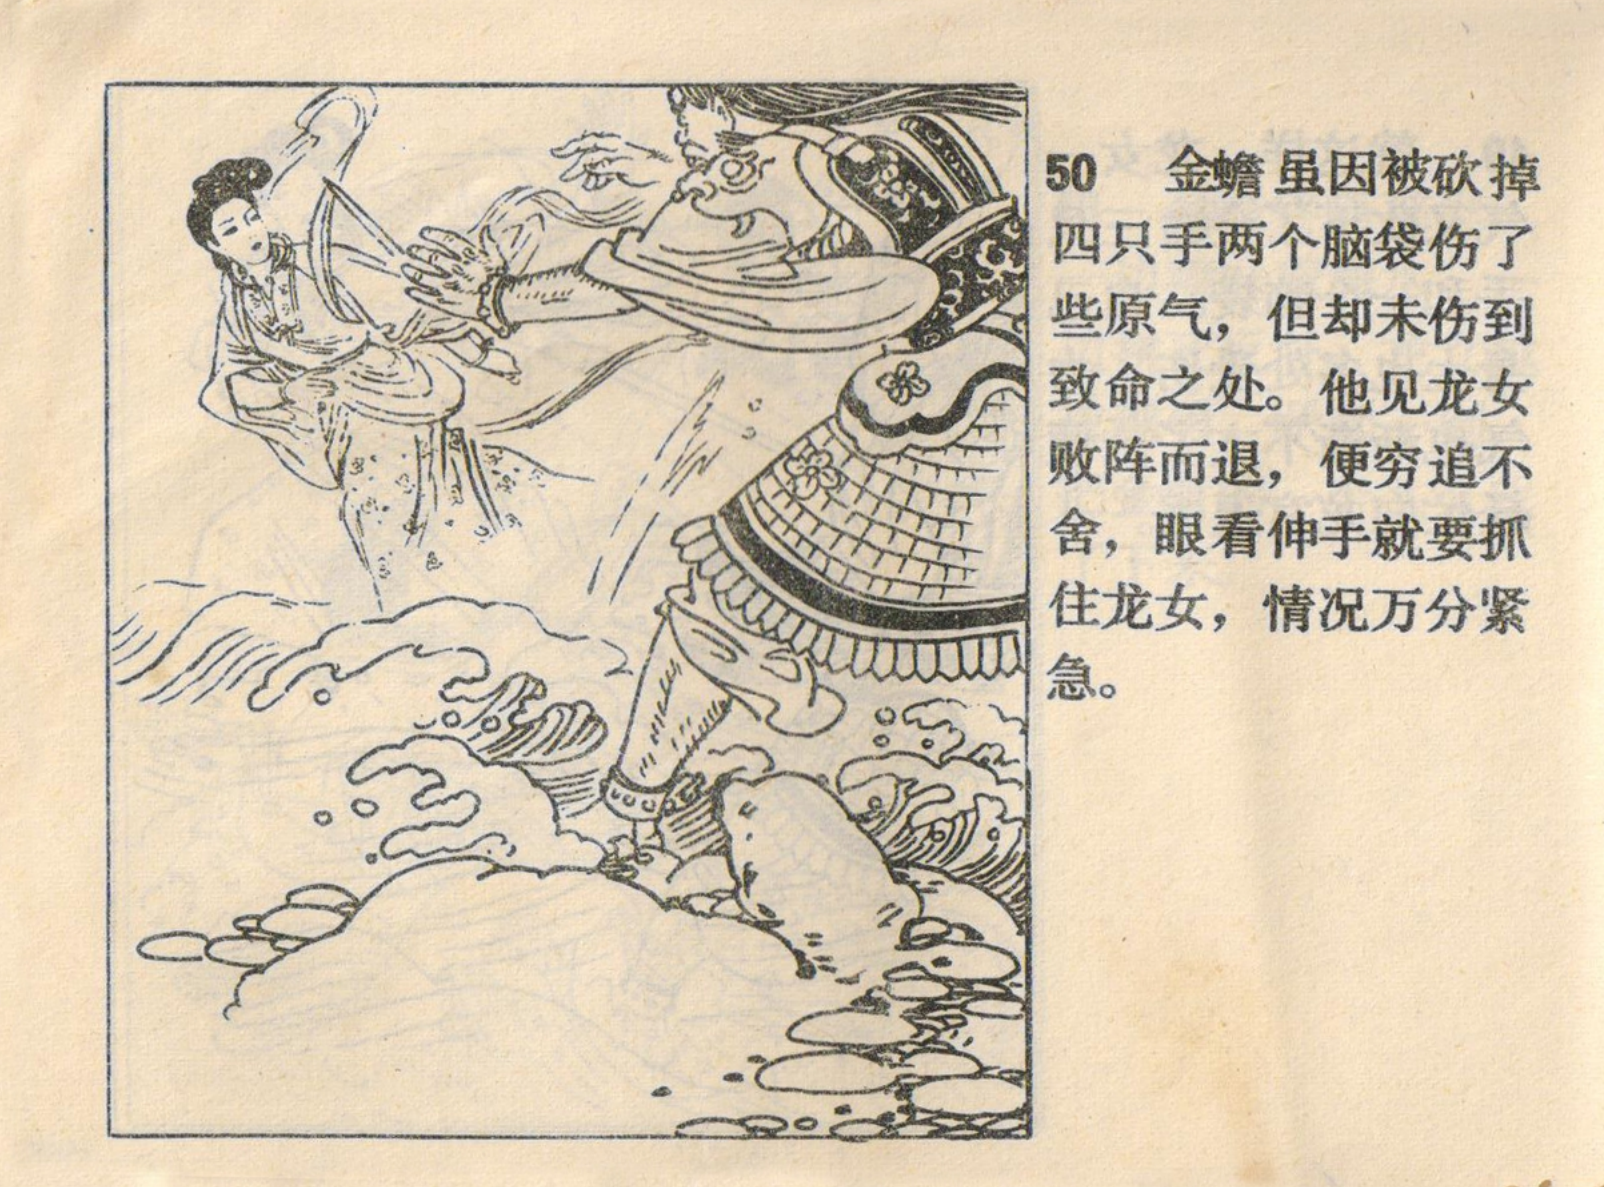 50 金蟾虽因被砍掉
四只手两个脑袋伤了
些原气，但却未伤到
致命之处。他见龙女
败阵而退，便穷追不
舍，眼看伸手就要抓
住龙女，情况万分紧
急。